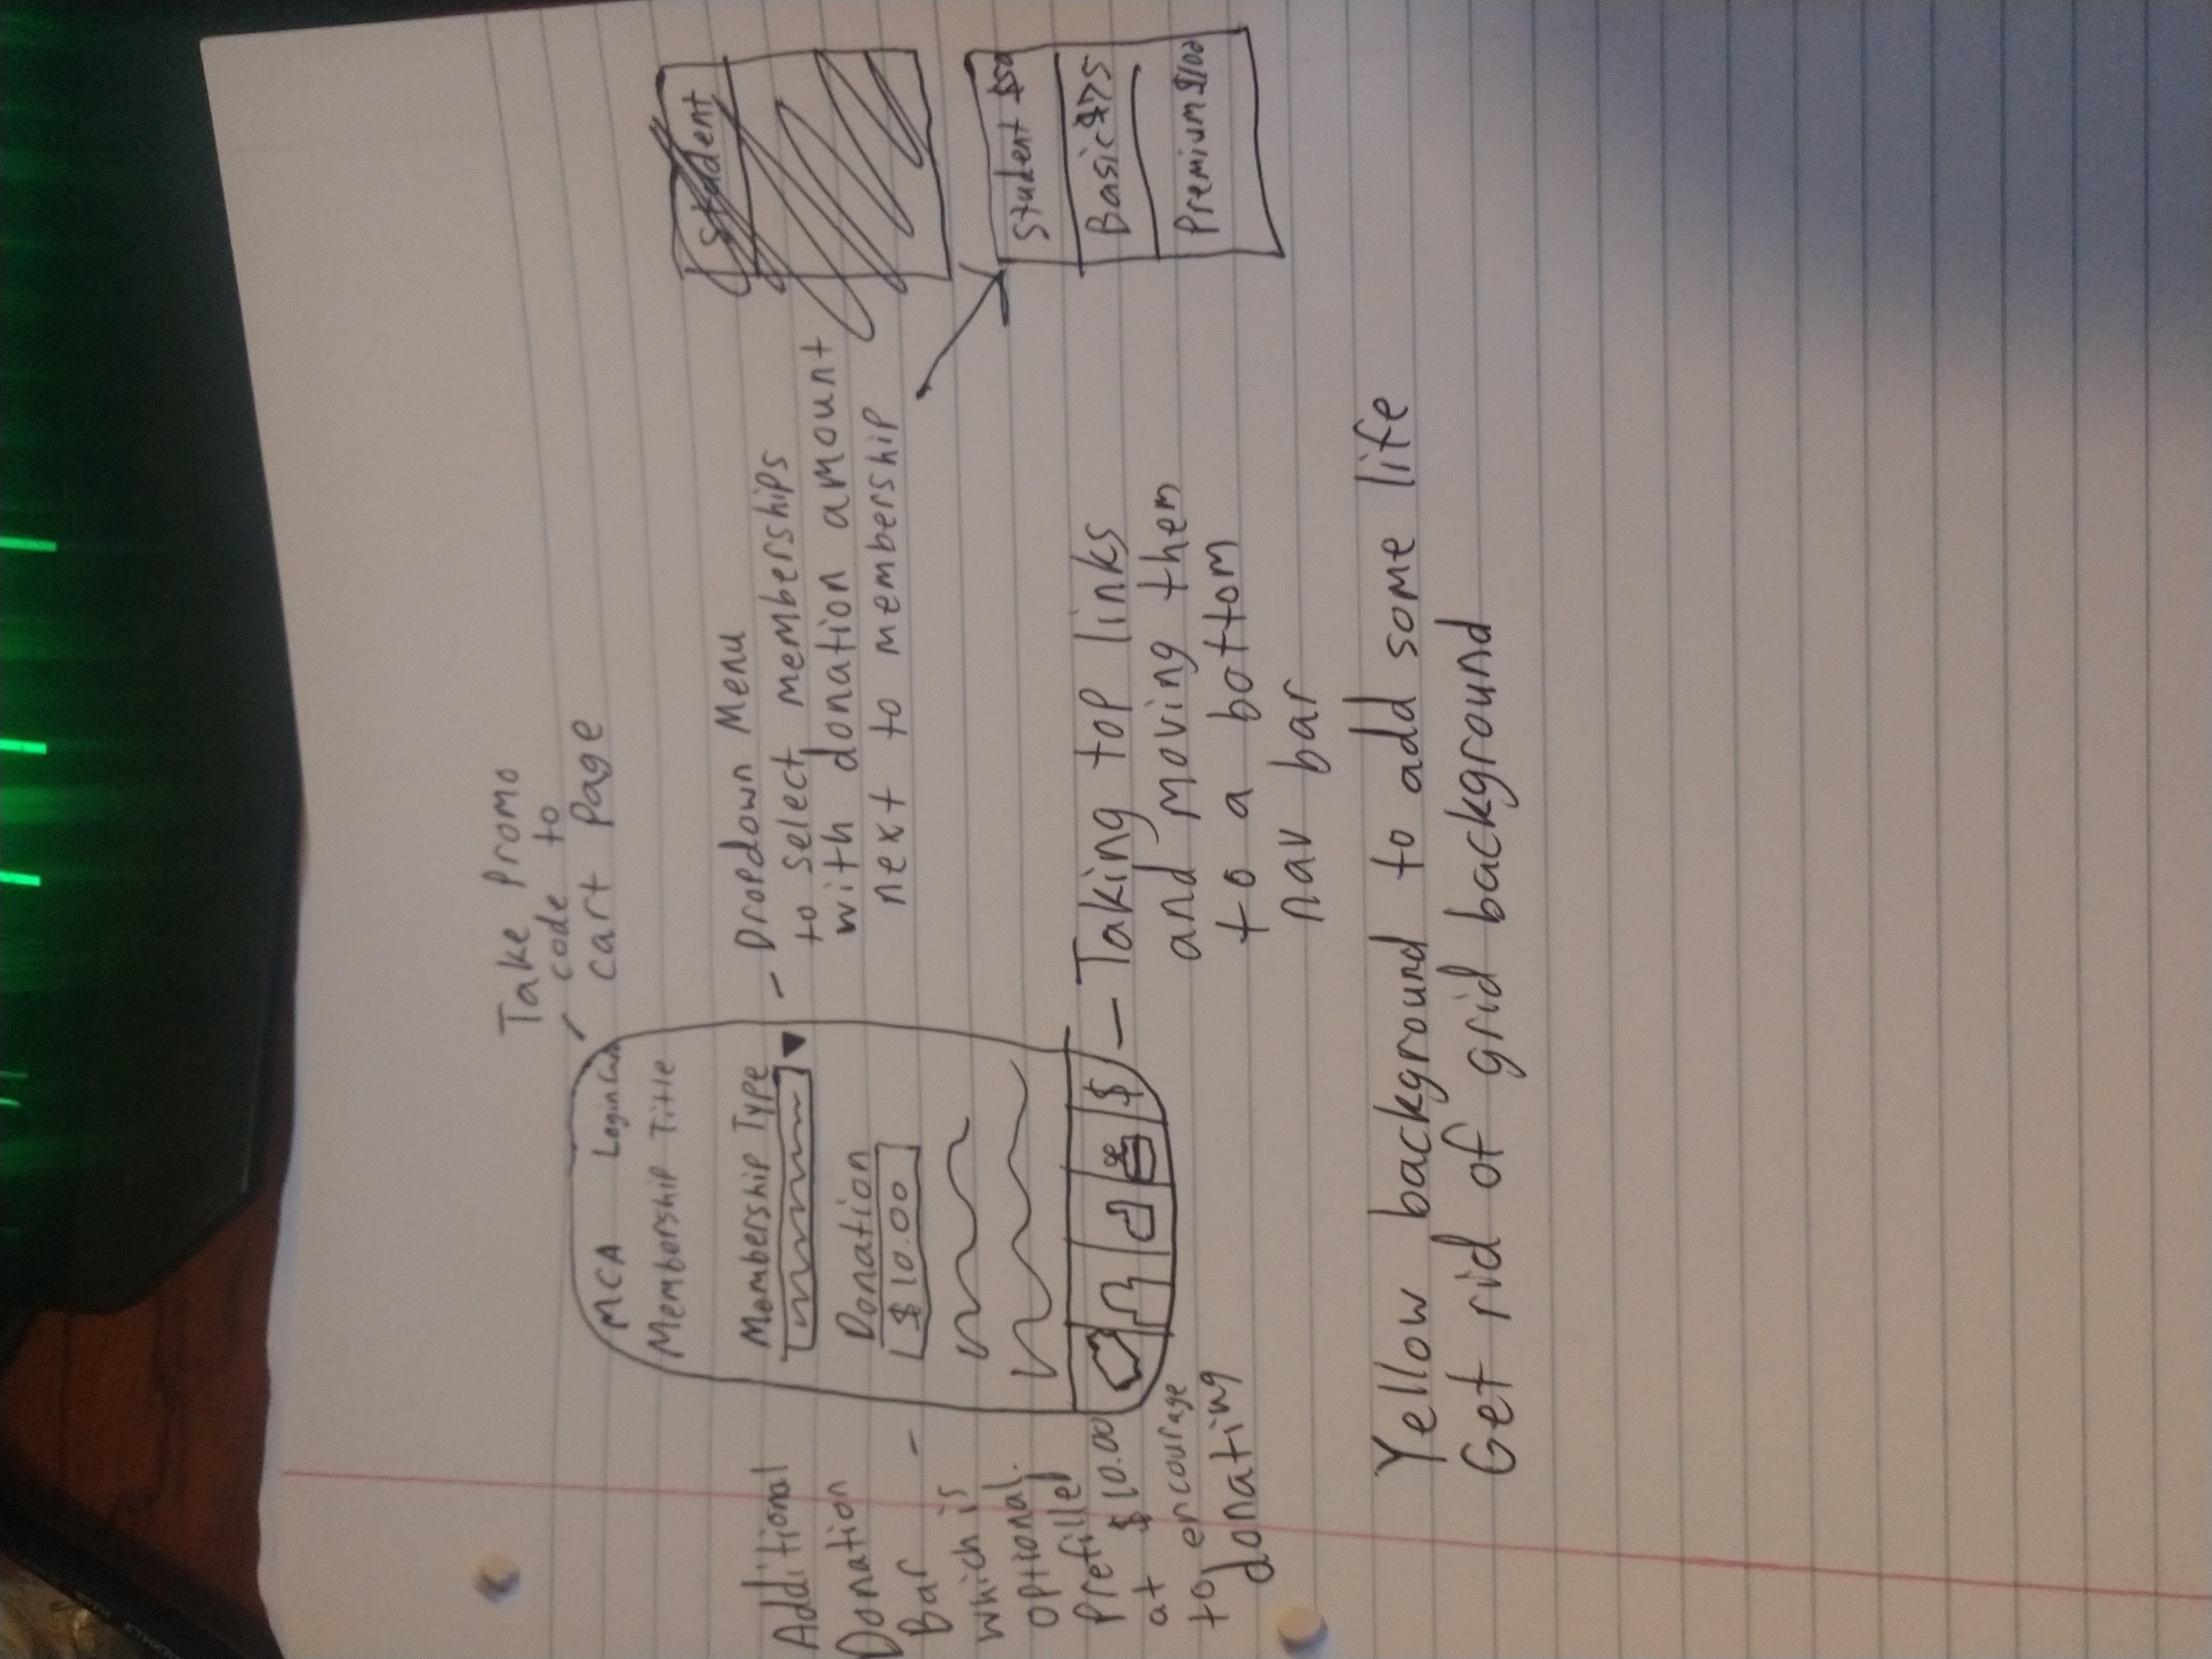 Take Promo
code to
cart Page
MCA Login Cart
Membership Title
Membership Type
Donation
$10.00
$
Additional
Donation
Bar
which is
optional.
Prefilled
at $10.00
to encourage
donating
Dropdown Menu
to select memberships
with donation amount
next to membership
Student
Student $50
Basic $75
Premium $100
Taking top links
and moving them
to a bottom
nav bar
Yellow background to add some life
Get rid of grid background